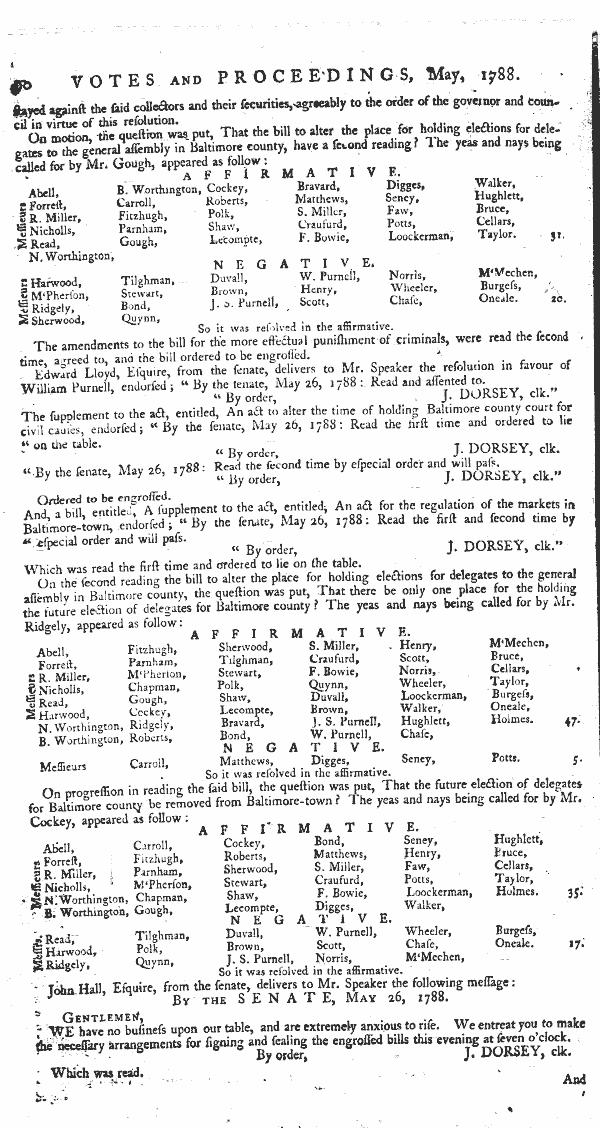 80 VOTES AND PROCEEDINGS, May, 1788.
stayed againſt the ſaid collectors and their ſecurities, agreeably to the order of the governor and coun-
cil in virtue of this reſolution.
On motion, the queſtion was put, That the bill to alter the place for holding elections for dele-
gates to the general aſſembly in Baltimore county, have a ſecond reading? The yeas and nays being
called for by Mr. Gough, appeared as follow:
AFFIRMATIVE.
Meſſieurs
Abell, B. Worthington, Cockey, Bravard, Digges, Walker,
Forreſt, Carroll, Roberts, Matthews, Seney, Hughlett,
R. Miller, Fitzhugh, Polk, S. Miller, Faw, Bruce,
Nicholls, Parnham, Shaw, Craufurd, Potts, Cellars,
Read, Gough, Lecompte, F. Bowie, Loockerman, Taylor. 31.
N. Worthington,
NEGATIVE.
Meſſieurs
Harwood, Tilghman, Duvall, W. Purnell, Norris, M'Mechen,
M'Pherſon, Stewart, Brown, Henry, Wheeler, Burgeſs,
Ridgely, Bond, J. S. Purnell, Scott, Chaſe, Oneale. 20.
Sherwood, Quynn,
So it was reſolved in the affirmative.
The amendments to the bill for the more effectual puniſhment of criminals, were read the ſecond
time, agreed to, and the bill ordered to be engroſſed.
Edward Lloyd, Eſquire, from the ſenate, delivers to Mr. Speaker the reſolution in favour of
William Purnell, endorſed; "By the ſenate, May 26, 1788: Read and aſſented to.
"By order, J. DORSEY, clk."
The ſupplement to the act, entitled, An act to alter the time of holding Baltimore county court for
civil cauſes, endorſed; "By the ſenate, May 26, 1788: Read the firſt time and ordered to lie
"on the table.
"By order, J. DORSEY, clk.
"By the ſenate, May 26, 1788: Read the ſecond time by eſpecial order and will paſs.
"By order, J. DORSEY, clk."
Ordered to be engroſſed.
And, a bill, entitled, A ſupplement to the act, entitled, An act for the regulation of the markets in
Baltimore-town, endorſed; "By the ſenate, May 26, 1788: Read the firſt and ſecond time by
"eſpecial order and will paſs.
"By order, J. DORSEY, clk."
Which was read the firſt time and ordered to lie on the table.
On the ſecond reading the bill to alter the place for holding elections for delegates to the general
aſſembly in Baltimore county, the queſtion was put, That there be only one place for the holding
the future election of delegates for Baltimore county? The yeas and nays being called for by Mr.
Ridgely, appeared as follow:
AFFIRMATIVE.
Meſſieurs
Abell, Fitzhugh, Sherwood, S. Miller, Henry, M'Mechen,
Forreſt, Parnham, Tilghman, Craufurd, Scott, Bruce,
R. Miller, M'Pherſon, Stewart, F. Bowie, Norris, Cellars,
Nicholls, Chapman, Polk, Quynn, Wheeler, Taylor,
Read, Gough, Shaw, Duvall, Loockerman, Burgeſs,
Harwood, Cockey, Lecompte, Brown, Walker, Oneale,
N. Worthington, Ridgely, Bravard, J. S. Purnell, Hughlett, Holmes. 47.
B. Worthington, Roberts, Bond, W. Purnell, Chaſe,
NEGATIVE.
Meſſieurs Carroll, Matthews, Digges, Seney, Potts. 5.
So it was reſolved in the affirmative.
On progreſſion in reading the ſaid bill, the queſtion was put, That the future election of delegates
for Baltimore county be removed from Baltimore-town? The yeas and nays being called for by Mr.
Cockey, appeared as follow:
AFFIRMATIVE.
Meſſieurs
Abell, Carroll, Cockey, Bond, Seney, Hughlett,
Forreſt, Fitzhugh, Roberts, Matthews, Henry, Bruce,
R. Miller, Parnham, Sherwood, S. Miller, Faw, Cellars,
Nicholls, M'Pherſon, Stewart, Craufurd, Potts, Taylor,
N. Worthington, Chapman, Shaw, F. Bowie, Loockerman, Holmes. 35.
B. Worthington, Gough, Lecompte, Digges, Walker,
NEGATIVE.
Meſſrs.
Read, Tilghman, Duvall, W. Purnell, Wheeler, Burgeſs,
Harwood, Polk, Brown, Scott, Chaſe, Oneale. 17.
Ridgely, Quynn, J. S. Purnell, Norris, M'Mechen,
So it was reſolved in the affirmative.
John Hall, Eſquire, from the ſenate, delivers to Mr. Speaker the following meſſage:
BY THE SENATE, MAY 26, 1788.
GENTLEMEN,
WE have no buſineſs upon our table, and are extremely anxious to riſe. We entreat you to make
the neceſſary arrangements for ſigning and ſealing the engroſſed bills this evening at ſeven o'clock.
By order, J. DORSEY, clk.
Which was read.
And